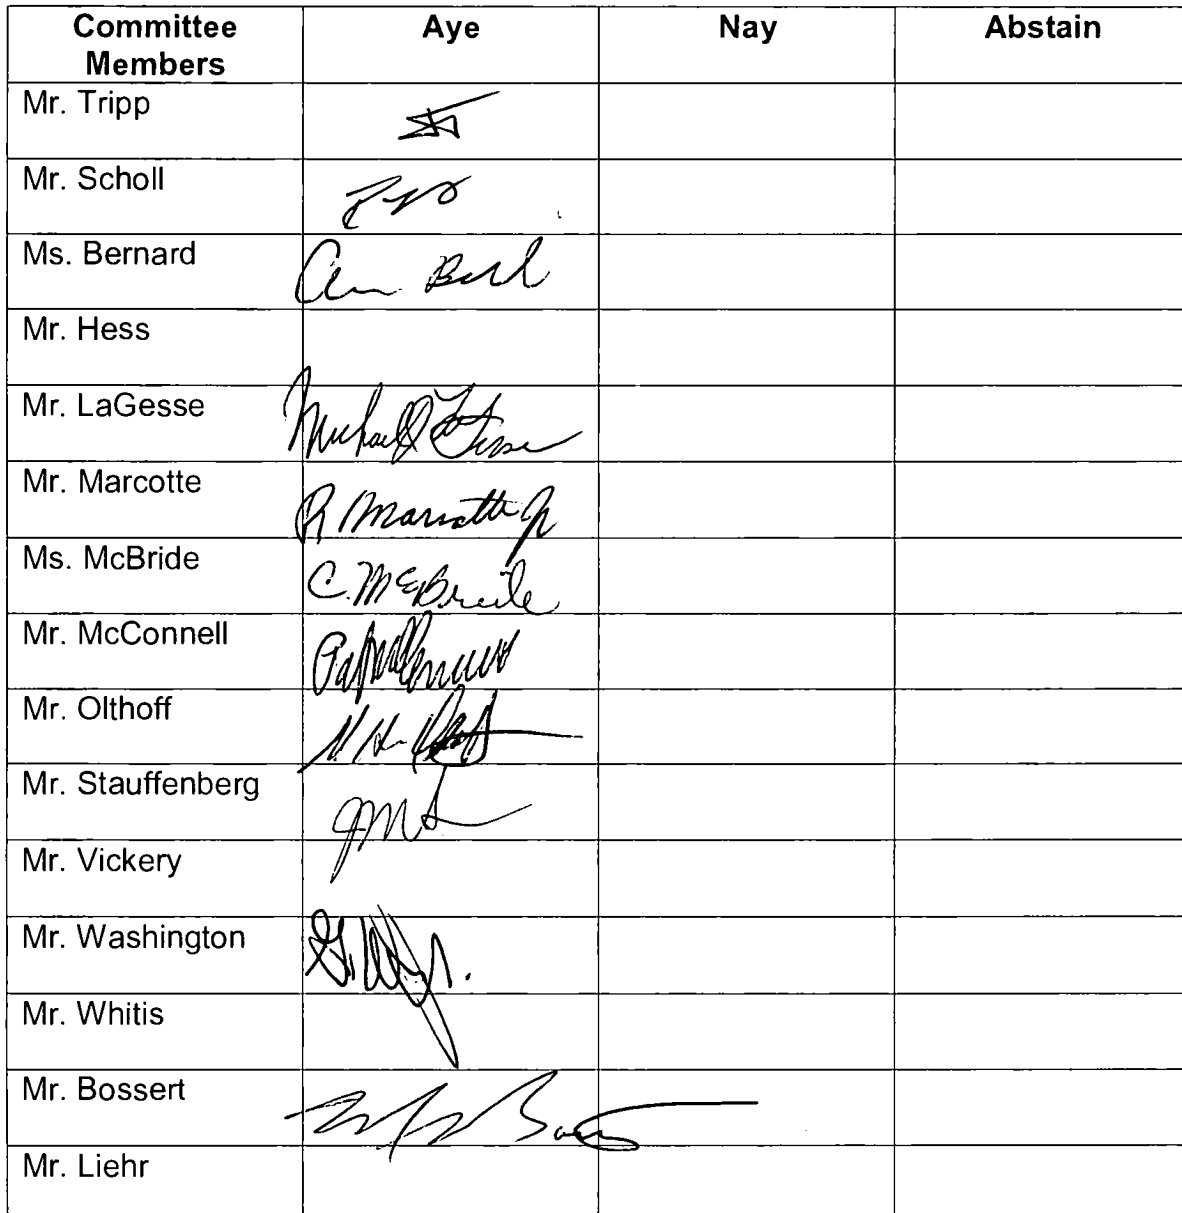 Committee Members Aye Nay Abstain
Mr. Tripp
Mr. Scholl
Ms. Bernard
Mr. Hess
Mr. LaGesse Michael J LaGesse
Mr. Marcotte R Marcotte Jr
Ms. McBride C. McBride
Mr. McConnell
Mr. Olthoff
Mr. Stauffenberg
Mr. Vickery
Mr. Washington
Mr. Whitis
Mr. Bossert
Mr. Liehr